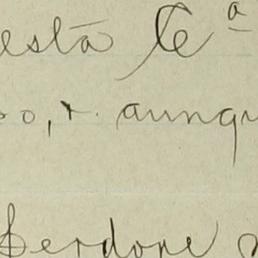 está Cª
so, r. aunqu
Perdone